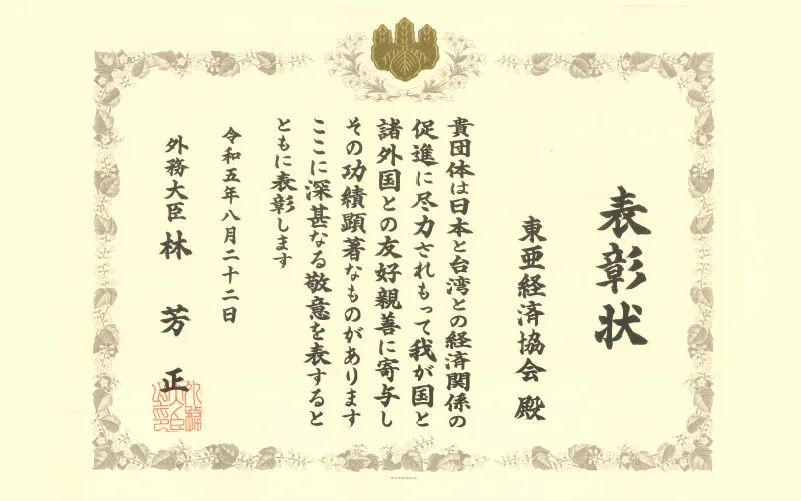 表彰状
東亜経済協会 殿
貴団体は日本と台湾との経済関係の
促進に尽力されもって我が国と
諸外国との友好親善に寄与し
その功績顕著なものがあります
ここに深甚なる敬意を表すると
ともに表彰します
令和五年八月二十二日
外務大臣 林 芳 正